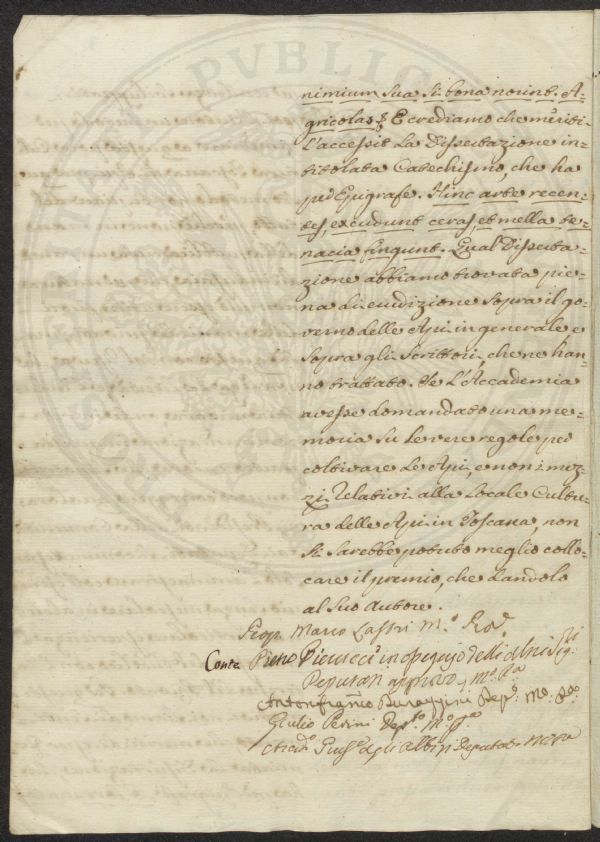 nimium sua si bona norint A-
gricolas &. E crediamo che meriti
L'accessit La Dissertazione in-
titolata Catechismo, che ha
per Epigrafe. Hinc arte recen-
tes, excudunt ceras, et mella te-
nacia fingunt. Qual Disserta-
zione abbiamo trovata pie-
na di erudizione sopra il go-
verno delle Api in generale e
sopra gli scrittori, che ne han-
no trattato. Se L'Accademia
avesse domandato una me-
moria su le vere regole per
coltivare le Api, e non i mez-
zi relativi alla locale Cultu-
ra delle Api in Toscana, non
si sarebbe potuto meglio collo-
care il premio, che dandolo
al suo Autore.
Prop. Marco Lastri M.º
Conte Pietro Pierucci in ossequio delli altri Sig.ri
Deputati approvo
Antonfran.co Dep.º M.º
Giulio Perini Dep.to M.º
degli Albizi Deputato